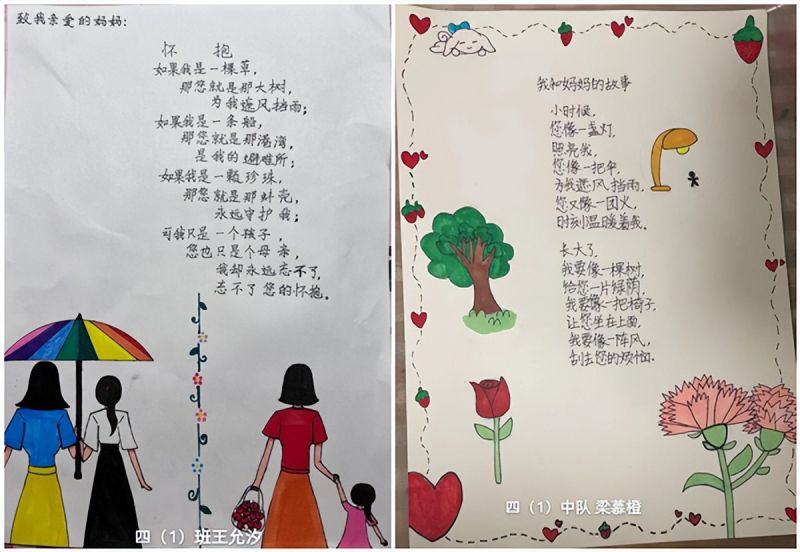 致我亲爱的妈妈：
怀 抱
如果我是一棵草，
那您就是那大树，
为我遮风挡雨；
如果我是一条船，
那您就是那港湾，
是我的避难所；
如果我是一颗珍珠，
那您就是那蚌壳，
永远守护我；
可我只是一个孩子，
您也只是个母亲，
我却永远忘不了，
忘不了您的怀抱。
四（1）班王允汐
我和妈妈的故事
小时候，
您像一盏灯，
照亮我，
您像一把伞，
为我遮风挡雨，
您又像一团火，
时刻温暖着我。
长大了，
我要像一棵树，
给您一片绿荫，
我要像一把椅子，
让您坐在上面，
我要像一阵风，
刮去您的烦恼。
四（1）中队 梁慕橙